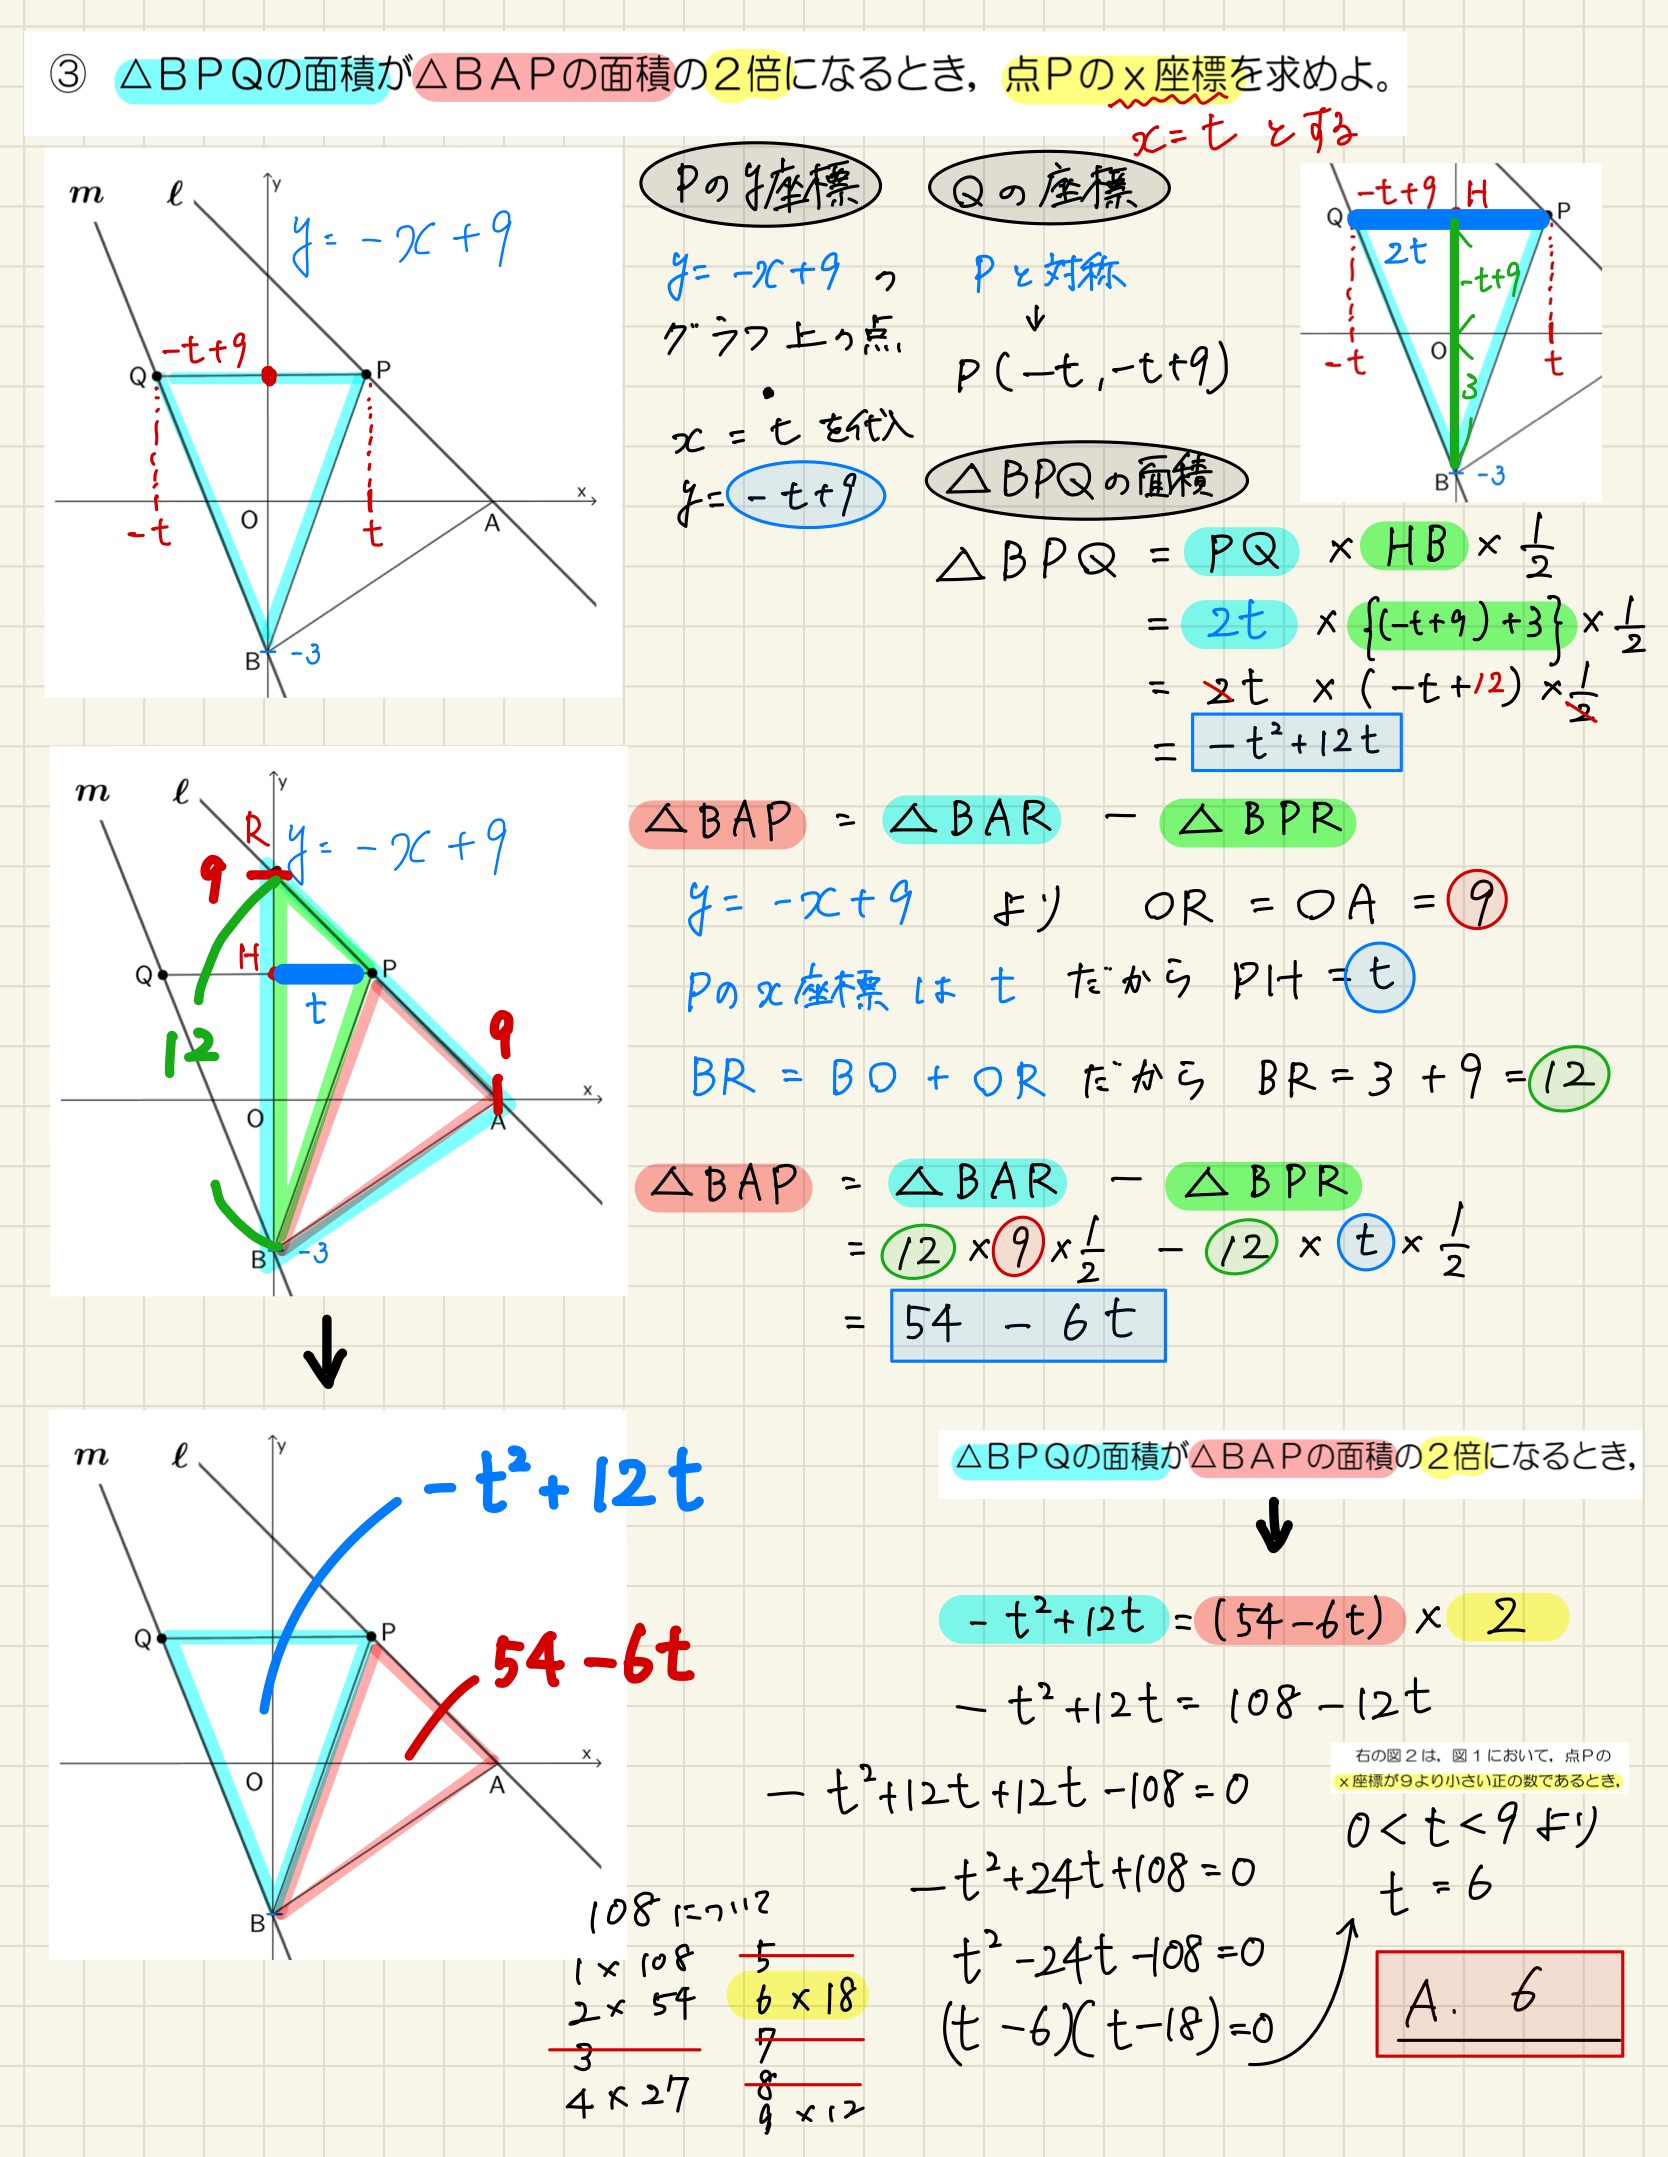 ③ △ＢＰＱの面積が△ＢＡＰの面積の２倍になるとき，点Ｐのｘ座標を求めよ。
x=t とする
m
ℓ
y
y=-x+9
Q
-t+9
P
-t
O
t
A
x
B
-3
Pのy座標
y=-x+9 の
グラフ上の点
x=t を代入
y=-t+9
Qの座標
Pと対称
↓
P(-t,-t+9)
-t+9
H
Q
P
2t
-t+9
-t
O
t
3
B
-3
△BPQの面積
△BPQ = PQ × HB × 1/2
= 2t × {(-t+9)+3} × 1/2
= 2t × (-t+12) × 1/2
= -t²+12t
m
ℓ
y
R
y=-x+9
9
Q
H
P
t
12
9
O
A
x
B
-3
△BAP = △BAR - △BPR
y=-x+9 より OR = OA = 9
Pのx座標は t だから PH = t
BR = BO + OR だから BR = 3 + 9 = 12
△BAP = △BAR - △BPR
= 12 × 9 × 1/2 - 12 × t × 1/2
= 54 - 6t
m
ℓ
y
-t²+12t
Q
P
54-6t
O
A
x
B
△ＢＰＱの面積が△ＢＡＰの面積の２倍になるとき，
-t²+12t = (54-6t) × 2
-t²+12t = 108-12t
-t²+12t+12t-108=0
-t²+24t+108=0
t²-24t-108=0
(t-6)(t-18)=0
右の図２は，図１において，点Ｐの
ｘ座標が９より小さい正の数であるとき，
0<t<9 より
t=6
A. 6
108について
1×108
2×54
3
4×27
5
6×18
7
8
9×12